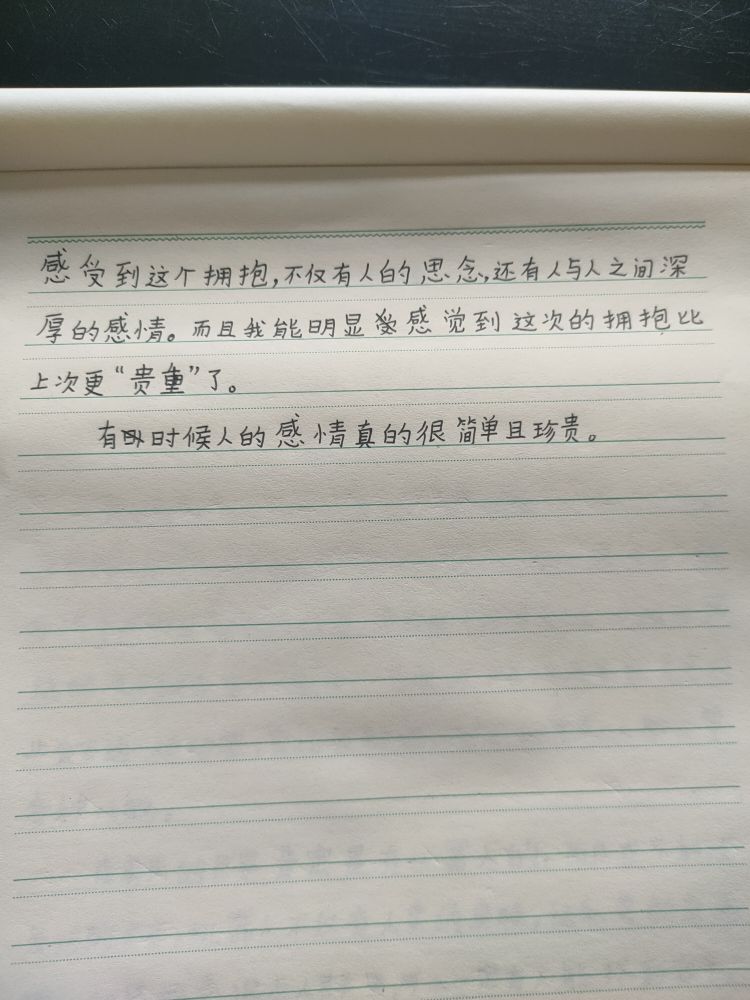 感受到这个拥抱,不仅有人的思念,还有人与人之间深
厚的感情。而且我能明显感觉到这次的拥抱比
上次更“贵重”了。
有时候人的感情真的很简单且珍贵。